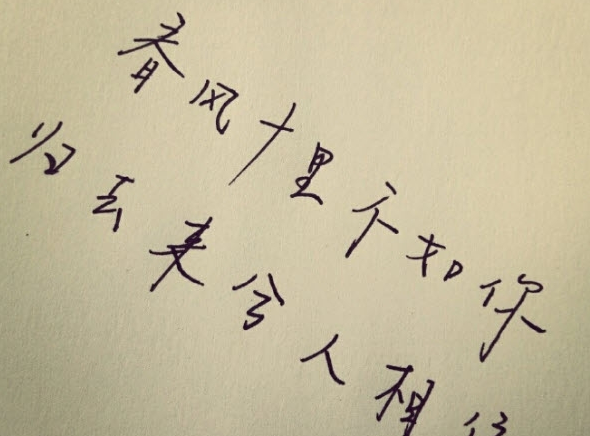 春风十里不如你
归去来兮人相